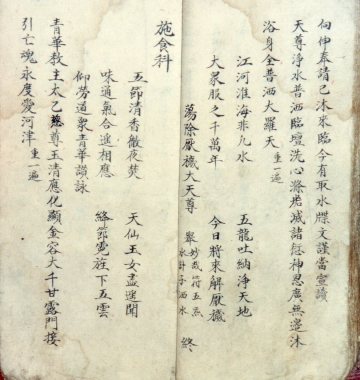 向伸奉請已沐來臨今有取水牒文謹當宣讀
天尊淨水普洒臨壇洗心滌慮滅諸愆神忍廣無邊沐
浴身全普洒大羅天 重一遍
江河淮海非凡水 五龍吐納淨天地
大眾服之千萬年 今日將來解厭穢
蕩除厭穢大天尊 舉妙哉符五忌水針子洒水 終
施食科
五節清香徹夜焚 天仙玉女盡遥聞
味通氣合遥相應 絳節霓旌下五雲
仰勞道眾青華讚詠
青華教主太乙慈尊玉清應化顯金容大千甘露門接
引亡魂永度愛河津 重一遍